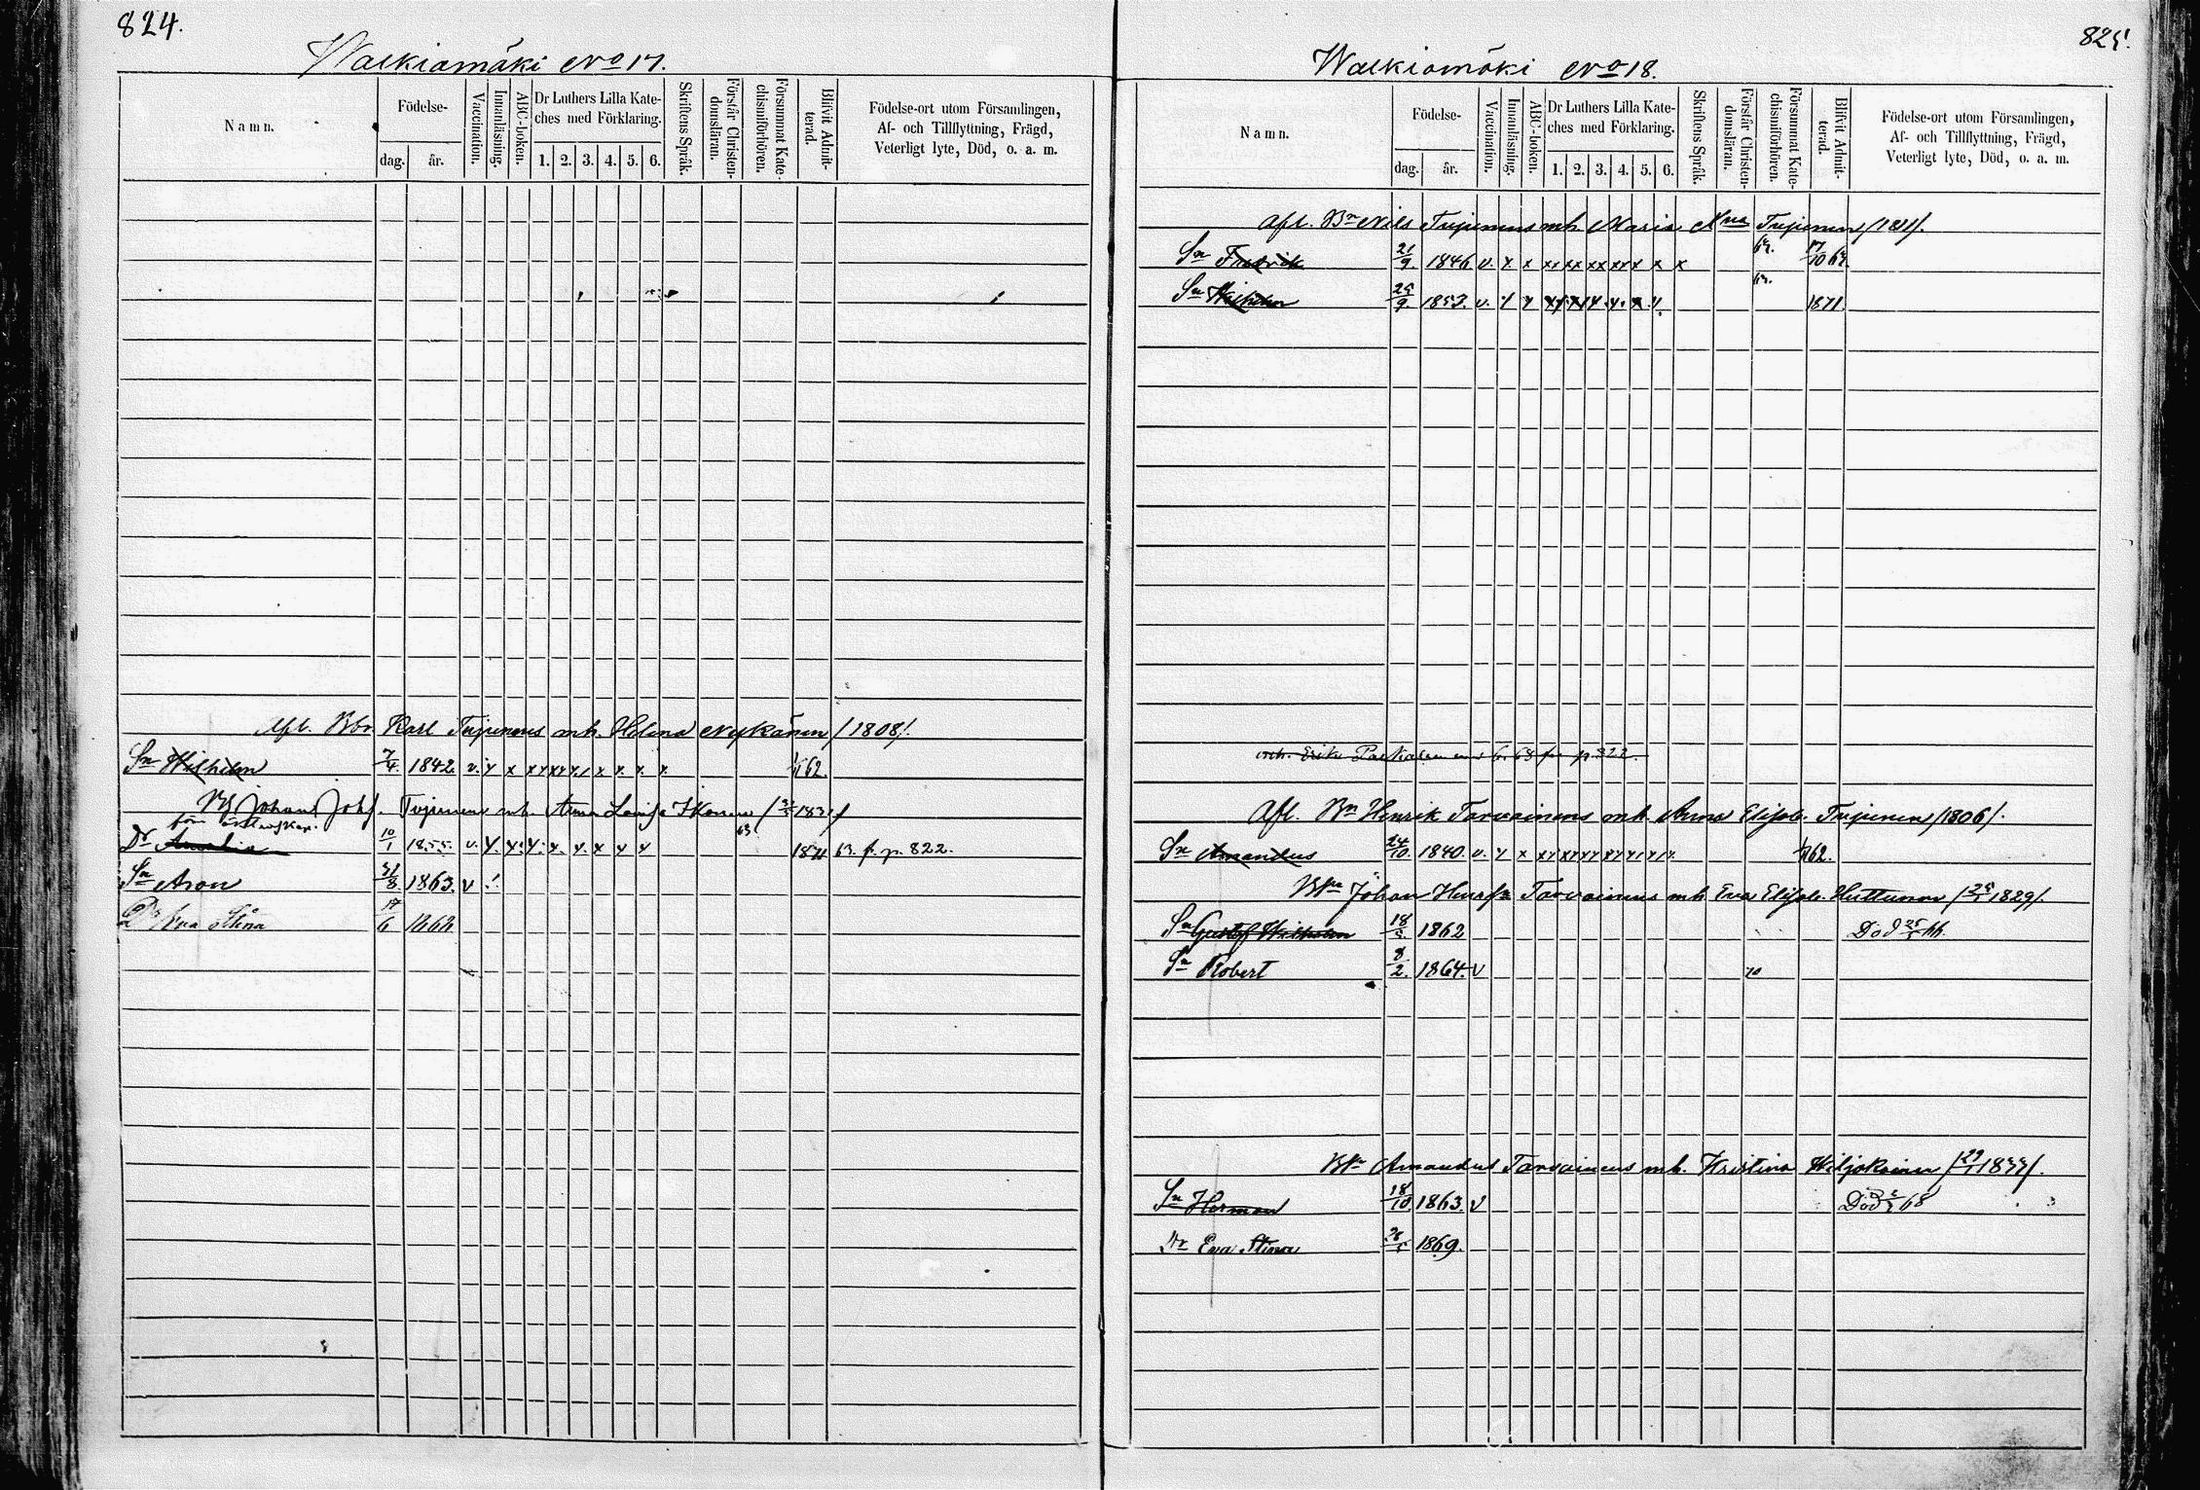 824.
Walkiamäki No 17.
Namn.
Födelse-
dag. år.
Vaccination.
Innanläsning.
ABC-boken.
Dr Luthers Lilla Kate-
ches med Förklaring.
1. 2. 3. 4. 5. 6.
Skriftens Språk.
Förstår Christen-
domsläran.
Försummat Kate-
chismiförhören.
Blifvit Admit-
terad.
Födelse-ort utom Församlingen,
Af- och Tillflyttning, Frägd,
Veterligt lyte, Död, o. a. m.
Afl. Karl Tujunens mh. Helena Nykänen /1808/.
Sn Wilhelm 7/4. 1842. v. y x x x x x x x x x. 62.
Johans Tujunens mh. Anna Lovisa Ikonen
Dr Amalia 10/1 1855. v. y. x. y. x. y. x y y 63 1871 63. f. p. 822.
Sn Aron 31/8. 1863. v
Dr Eva Stina 17/6
825.
Walkiamäki No 18.
Namn.
Födelse-
dag. år.
Vaccination.
Innanläsning.
ABC-boken.
Dr Luthers Lilla Kate-
ches med Förklaring.
1. 2. 3. 4. 5. 6.
Skriftens Språk.
Förstår Christen-
domsläran.
Försummat Kate-
chismiförhören.
Blifvit Admit-
terad.
Födelse-ort utom Församlingen,
Af- och Tillflyttning, Frägd,
Veterligt lyte, Död, o. a. m.
Afl. Bn Nils Tujunens mh. Maria Tujunen /1811/.
Sn Fredrik 21/9 1846 v. x x xx xx xx xx x x x 17/10
Sn Wilhelm 25/9. 1853. v. y y 1871.
Erik
Afl. Bn Henrik Tarvainens mh. Anna Elisab. Tujunen /1806/.
Sn Amandus 24/10. 1840. v. y x 62.
Johan Henrss Tarvainens mh Eva Elisab. Huttunen 1829/.
Sn Gustaf Wilhelm 18 1862 Död 25 66.
Sn Robert 8/2. 1864. v 70
Amandus Tarvainens mh. Kristina Hiljokainen
Sn Herman 18/10 1863. v Död 68
Dr Eva Stina 1869.